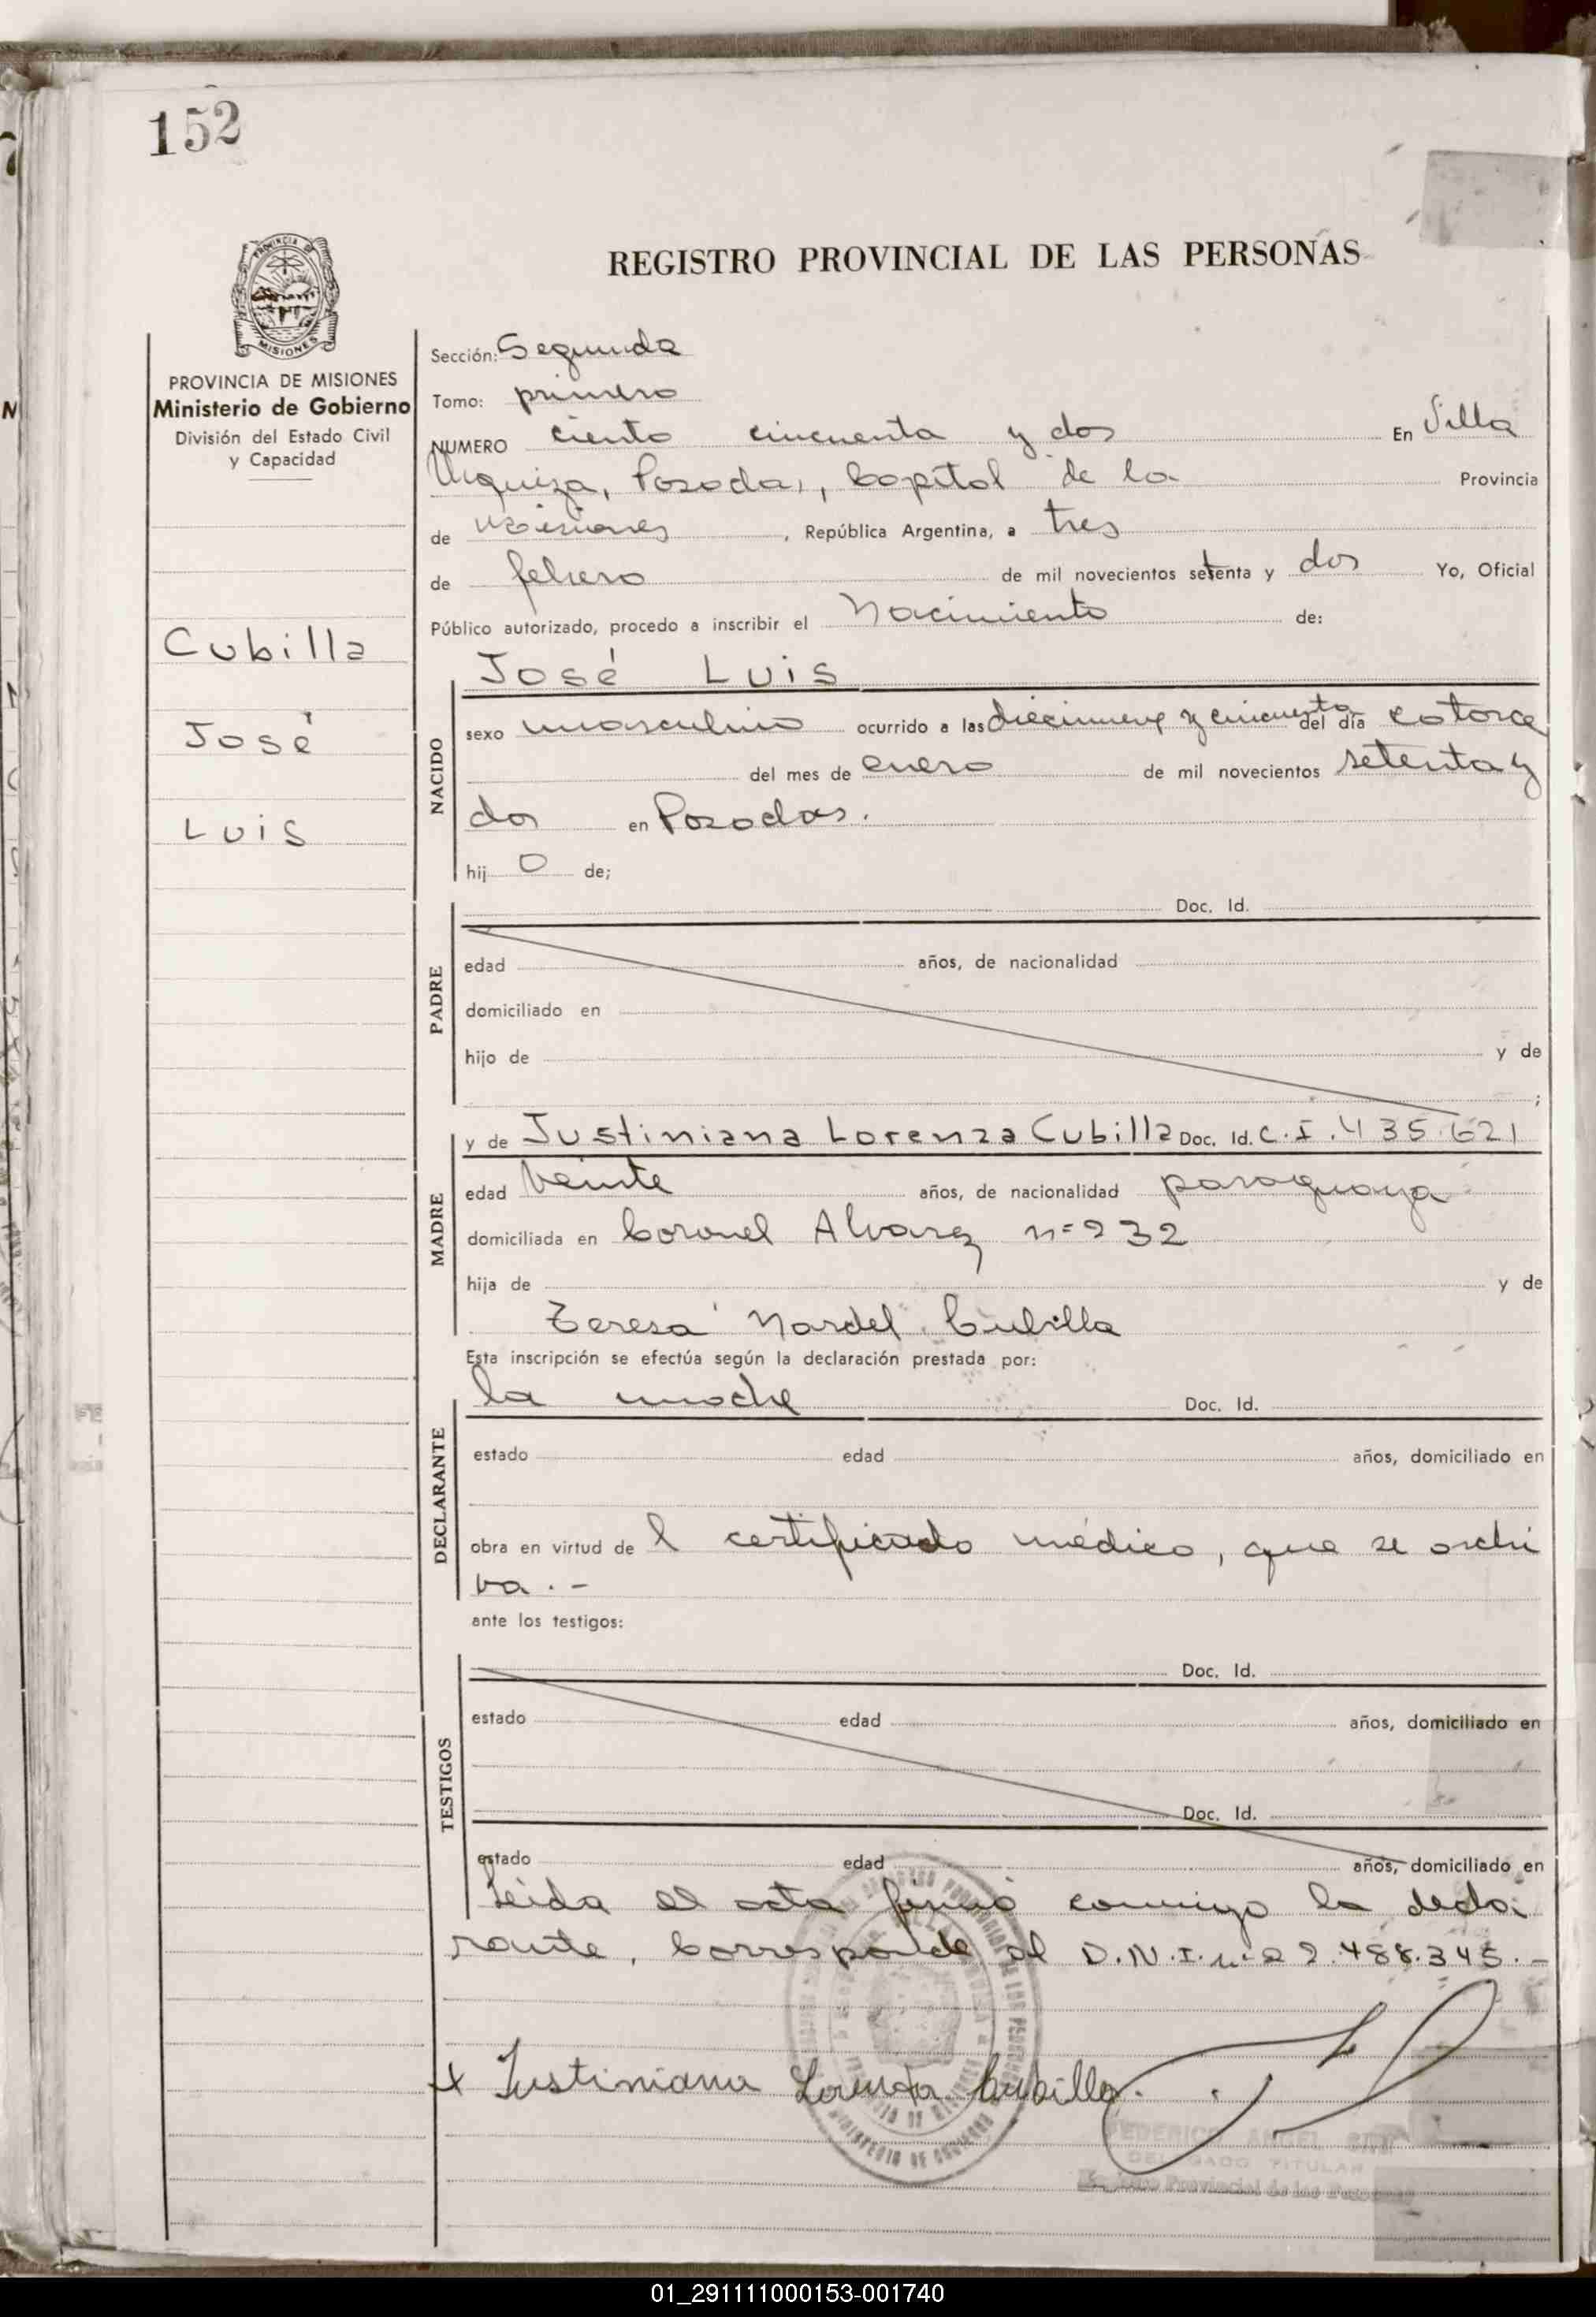 152
PROVINCIA DE
MISIONES
REGISTRO PROVINCIAL DE LAS PERSONAS
PROVINCIA DE MISIONES
Ministerio de Gobierno
División del Estado Civil
y Capacidad
Cubilla
José
Luis
Sección: Segunda
Tomo: primero
NUMERO ciento cincuenta y dos En Villa
Urquiza, Posadas, Capital de la Provincia
de Misiones, República Argentina, a tres
de febrero de mil novecientos setenta y dos Yo, Oficial
Público autorizado, procedo a inscribir el Nacimiento de:
José Luis
NACIDO
sexo masculino ocurrido a las diecinueve y cincuenta del día catorce
del mes de enero de mil novecientos setenta y
dos en Posadas.
hij o de;
PADRE
Doc. Id.
edad años, de nacionalidad
domiciliado en
hijo de y de
;
MADRE
y de Justiniana Lorenza Cubilla Doc. Id. C.I. 435.621
edad veinte años, de nacionalidad paraguaya
domiciliada en Coronel Alvarez nº 232
hija de y de
Teresa Nardel Cubilla
Esta inscripción se efectúa según la declaración prestada por:
DECLARANTE
la madre Doc. Id.
estado edad años, domiciliado en
obra en virtud de l certificado médico, que se archi
va.-
ante los testigos:
TESTIGOS
Doc. Id.
estado edad años, domiciliado en
Doc. Id.
estado edad años, domiciliado en
Leída el acta firmó conmigo la decla
rante, Corresponde al D.N.I. nº 22.488.345.-
x Justiniana Lorenza Cubilla.
FEDERICO ANGEL
DELEGADO TITULAR
Registro Provincial de las Personas
01_291111000153-001740